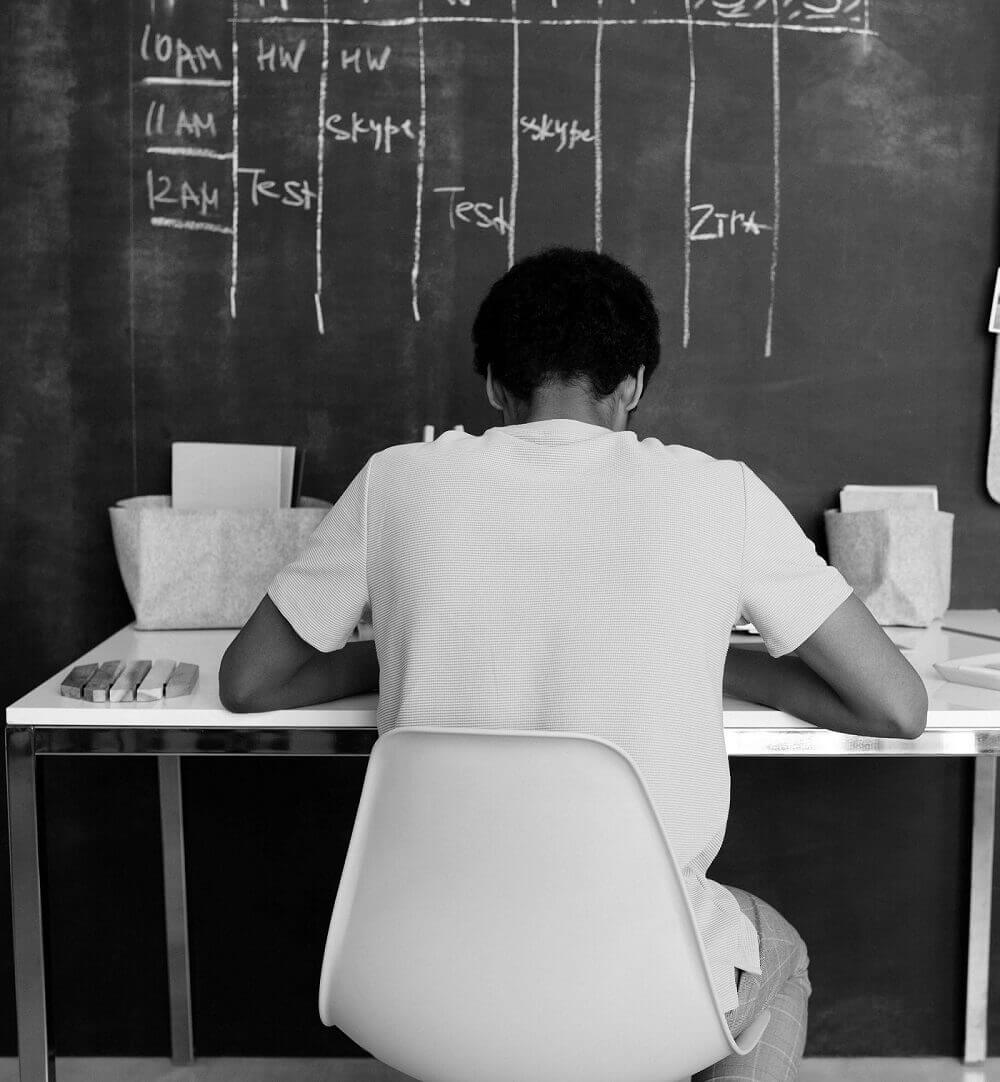 10AM HW HW
11AM skype sskype
12AM Test Test